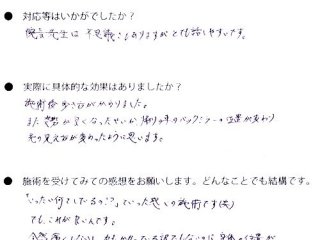 ● 対応等はいかがでしたか？
院長先生は不思議さもありますがとても話しやすいです。
● 実際に具体的な効果はありましたか？
施術後歩き方がかわりました。
また姿勢が良くなったせいか、車のバックミラーの位置が変わり
その見え方が変わったように思います。
● 施術を受けてみての感想をお願いします。どんなことでも結構です。
「いったい何してるの？」といった感じの施術です(笑)
でもこれが良いんです。